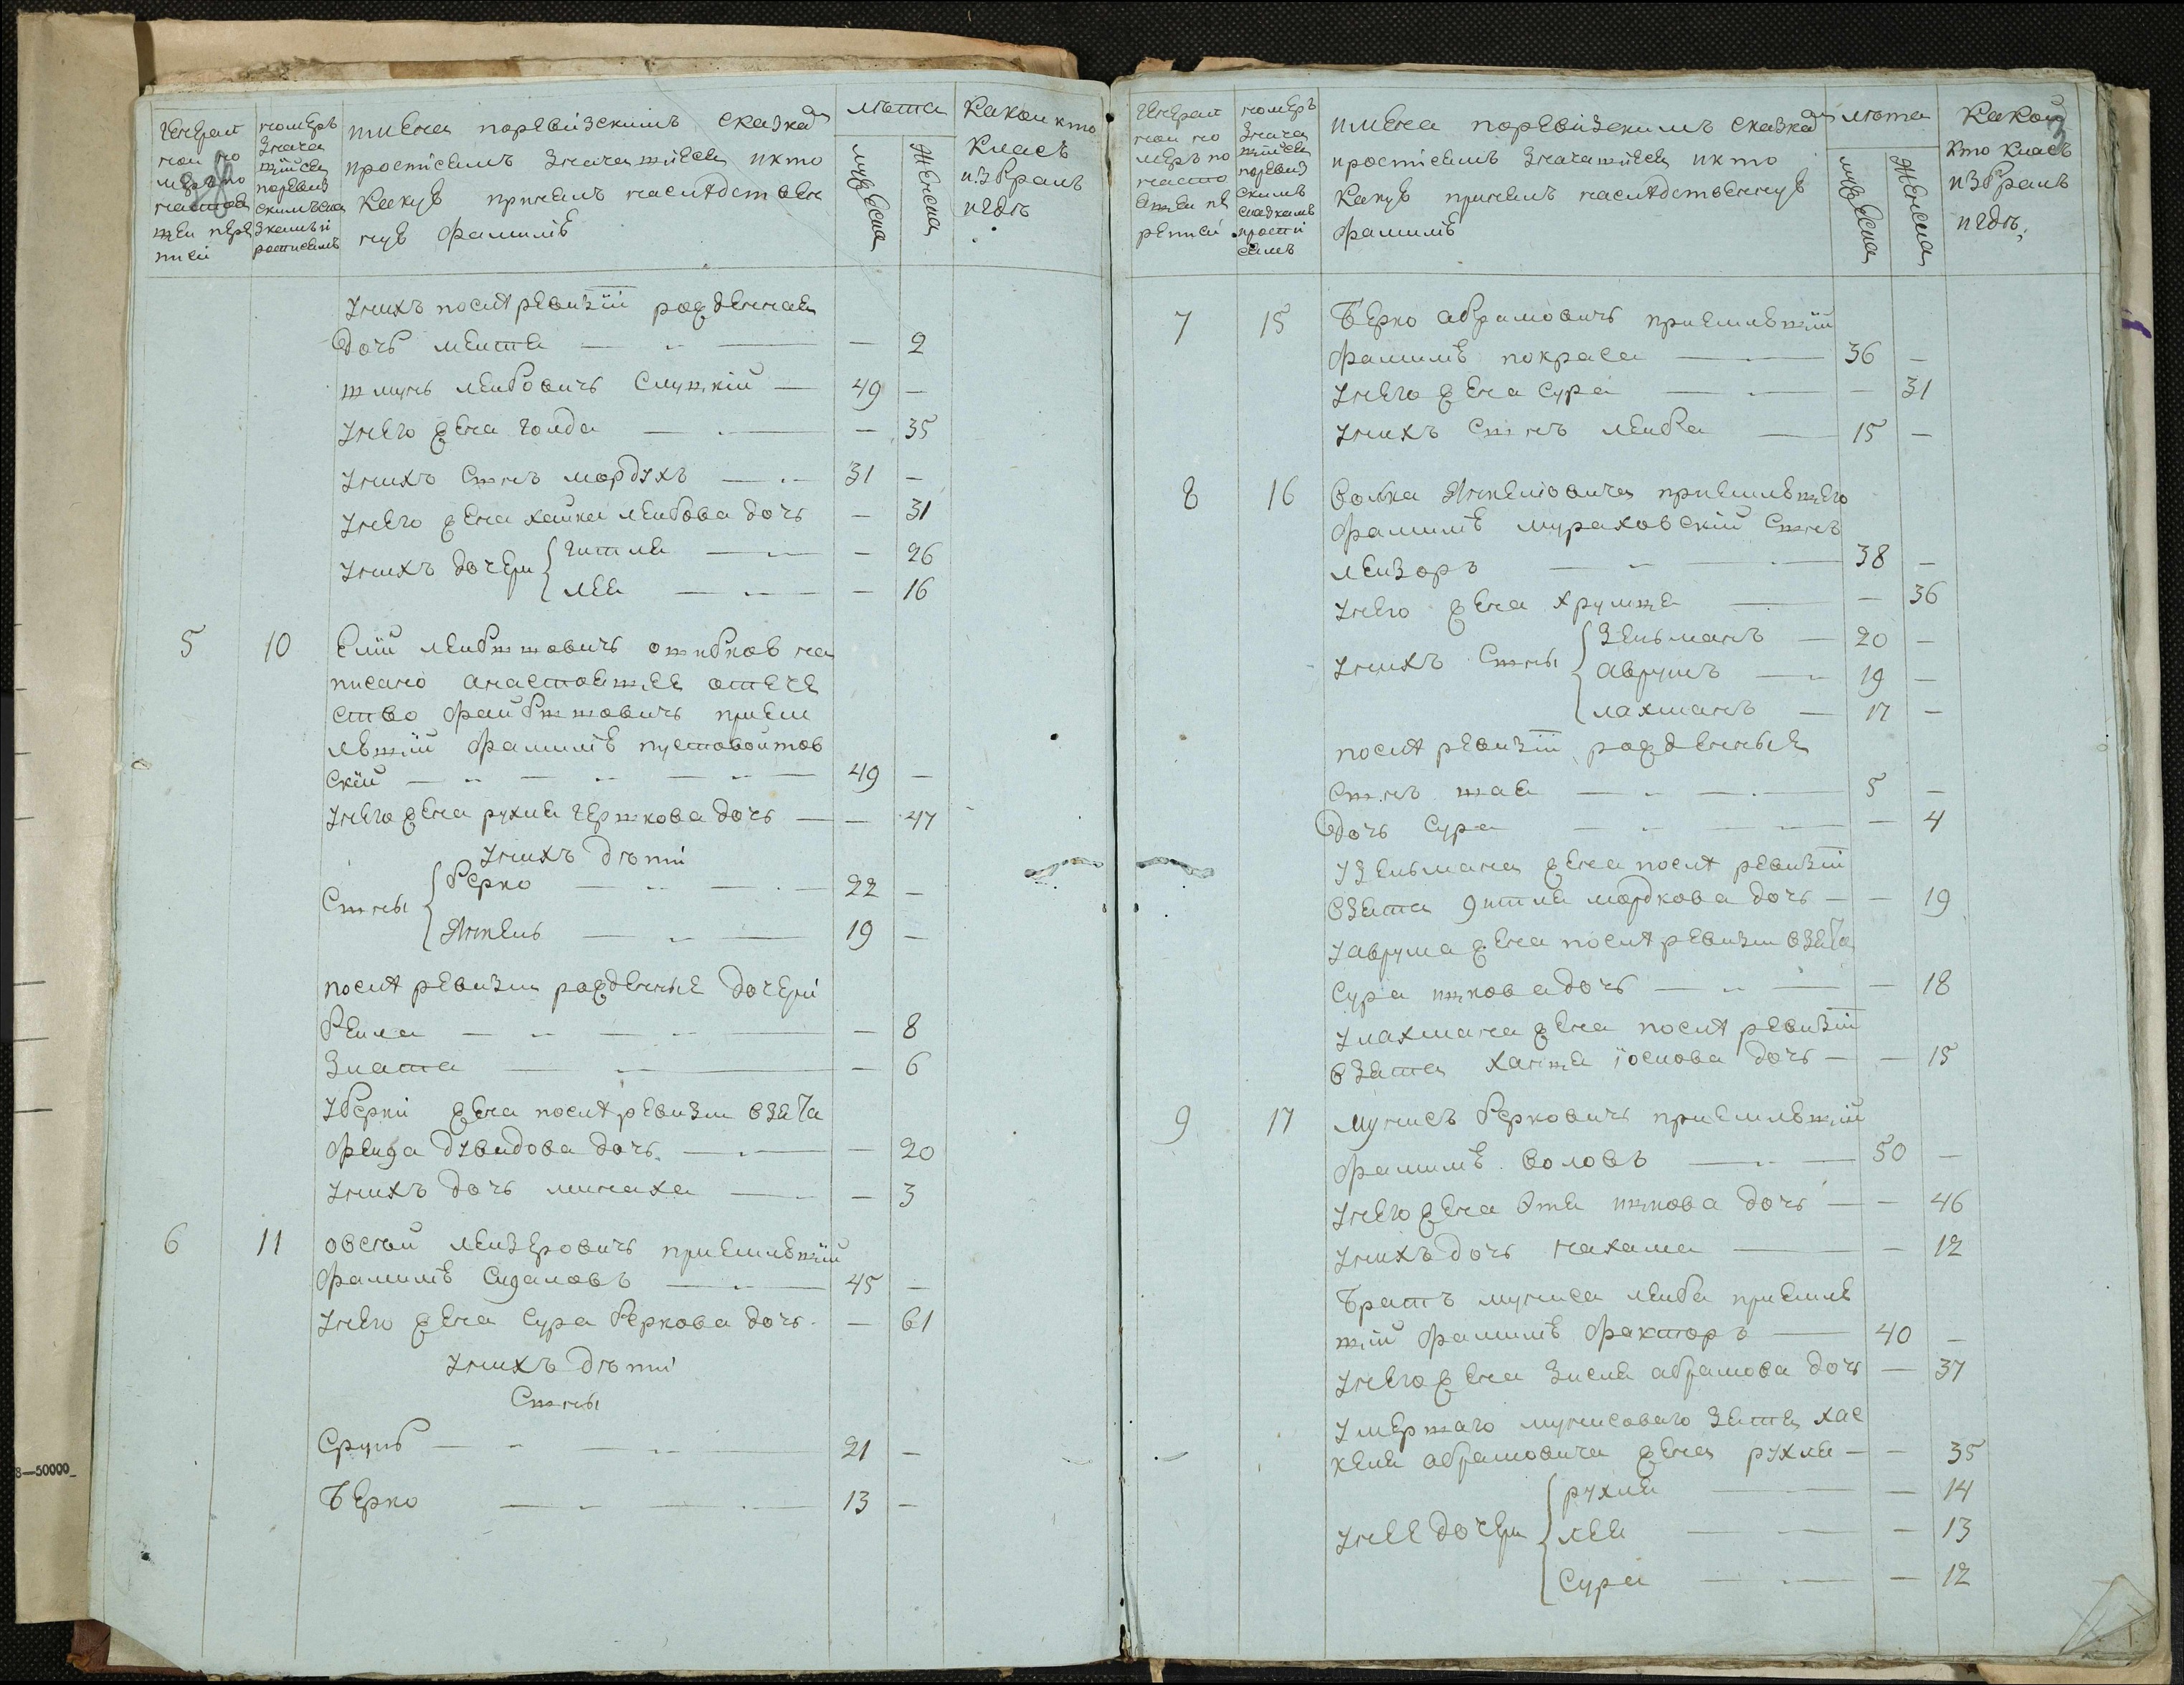 Генерал
ной но
мерь по
настоя
щеи пере
писи
номеръ
значa
щiися
поревиз
скимъска
зкамъи
росписямъ
имена поревизскимъ сказкам
иросписямъ значащиеся икто
какую принелъ наследствен
ную фамилiю
лета
мужеска
женска
Какои кто
класъ
избралъ
игде
унихъ после ревизiи рожденная
дочь меита — 2
шмунь леибовичь слуцкiй — 49 —
унего жена голда — — 35
унихъ сынъ мордухъ — 31 —
унего жена хаика леибова дочь — 31
унихъ дочери гитля — — 26
лея — — 16
5 10 Елiй леибышовичь ошибкою на
писано анастоящее отече
ство фаибышовичь прием
лющiй фамилiю пустовоитов
скiй — 49 —
унего жена рухля гершкова дочь — — 47
унихъ дети
сыны берко — 22 —
Янкель — 19 —
после ревизiи рожденные дочери
беила — — 8
злата — — 6
уберки жена после ревизiи взята
феига давидова дочь — — 20
унихъ дочь минаха — — 3
6 11 овсеи леизеровичь приемлющiй
фамилiю сигаловъ — 45 —
унего жена сура беркова дочь — — 61
унихъ дети
сыны
сруль — 21 —
Берко — 13 —
8—50000
Генерал
ной но
меръ по
насто
ящеи пе
реписи
номеръ
значa
щiися
поревиз
скимъ
сказкамъ
ироспи
сямъ
имена поревизскимъ сказкам
иросписямъ значащиеся икто
какую принелъ наследственную
фамилiю
лета
мужеска
женска
Какой
кто класъ
избралъ
игде
7 15 Берко абрамовичь приемлющiй
фамилiю покраса — 36 —
унего жена сура — — 31
унихъ сынъ леиба — 15 —
8 16 волька Янкелiовича приемлющего
фамилiю мураховскiй сынъ
леизоръ — 38 —
унего жена хрумца — — 36
унихъ сыны зельманъ — 20 —
аврумъ — 19 —
лахманъ — 17 —
после ревизiи рожденные
сынъ шая — 5 —
дочь сура — — 4
узельмана жена после ревизiи
взята гитля мордкова дочь — — 19
уаврума жена после ревизiи взята
сура ицкова дочь — — 18
улахмана жена после ревизiи
взята ханца iоснова дочь — — 15
9 17 мунисъ берковичь приемлющiй
фамилiю воловъ — 50 —
унего жена этя ицкова дочь — — 46
унихъ дочь нахама — — 12
Братъ муниса леиба приемлю
щiй фамилiю факторъ — 40 —
унего жена зисля абрамова дочь — 37
умершаго мунисоваго зятя хас
келя абрамовича жена рухля — — 35
унее дочери рухля — — 14
лея — — 13
сура — — 12